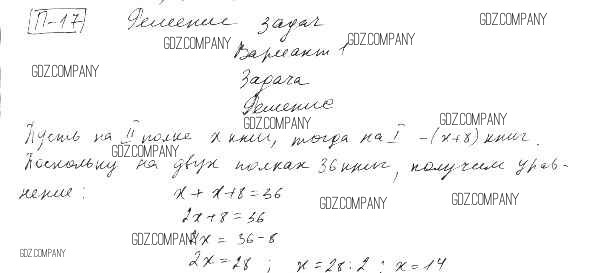 П-17 Решение задач
GDZ.COMPANY
GDZ.COMPANY
Вариант 1
GDZ.COMPANY
GDZ.COMPANY
Задача
Решение
GDZ.COMPANY
GDZ.COMPANY
Пусть на II полке x книг, тогда на I – (x+8) книг.
GDZ.COMPANY
Поскольку на двух полках 36 книг, получим урав-
нение: x + x + 8 = 36
GDZ.COMPANY
GDZ.COMPANY
2x + 8 = 36
GDZ.COMPANY
2x = 36 - 8
GDZ.COMPANY
2x = 28 ; x = 28 : 2 ; x = 14